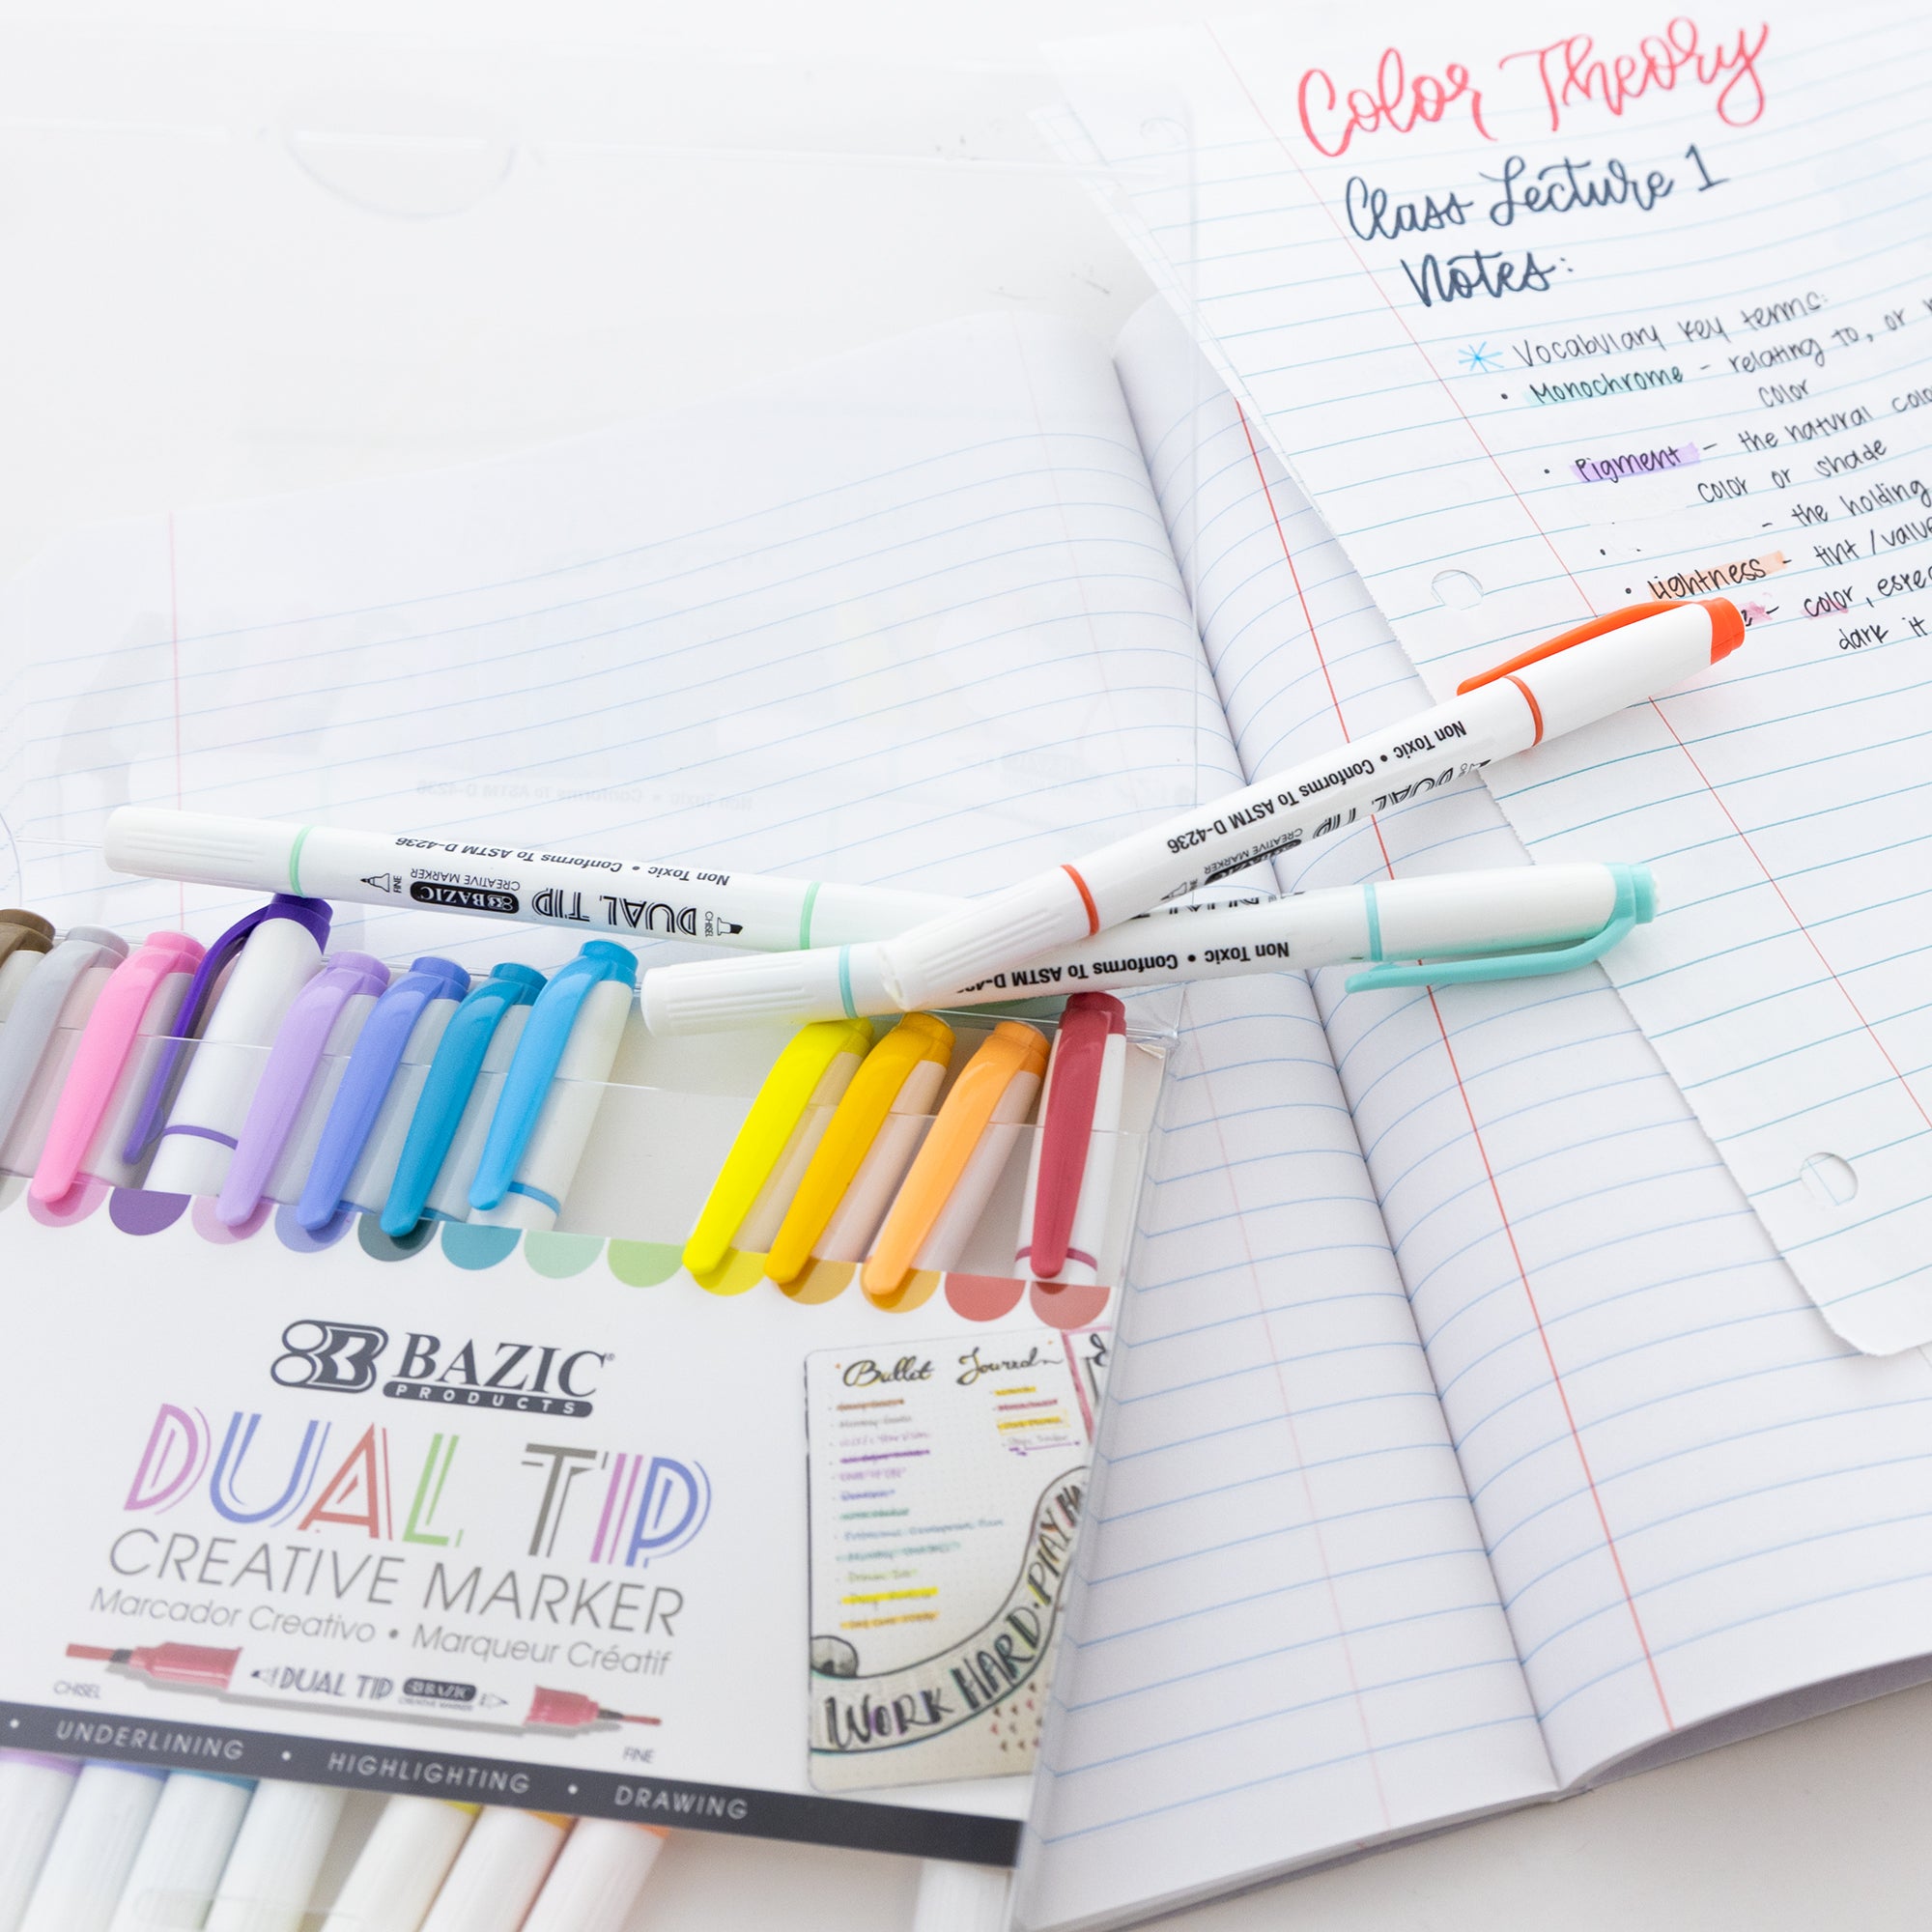 Color Theory
Class Lecture 1
Notes:
Vocabulary key terms:
• Monochrome - relating to, or
color
• Pigment - the natural
color or shade
• - the holding
• Lightness - tint / value
- color,
dark it
Non Toxic • Conforms To ASTM D-4236
DUAL TIP
CREATIVE MARKER
Non Toxic • Conforms To ASTM D-4236
CHISEL DUAL TIP BAZIC CREATIVE MARKER FINE
Non Toxic • Conforms To ASTM
BAZIC®
PRODUCTS
DUAL TIP
CREATIVE MARKER
Marcador Creativo • Marqueur Créatif
DUAL TIP BAZIC
CREATIVE MARKER
CHISEL
FINE
• UNDERLINING • HIGHLIGHTING • DRAWING
Bullet Journal
WORK HARD • PLAY